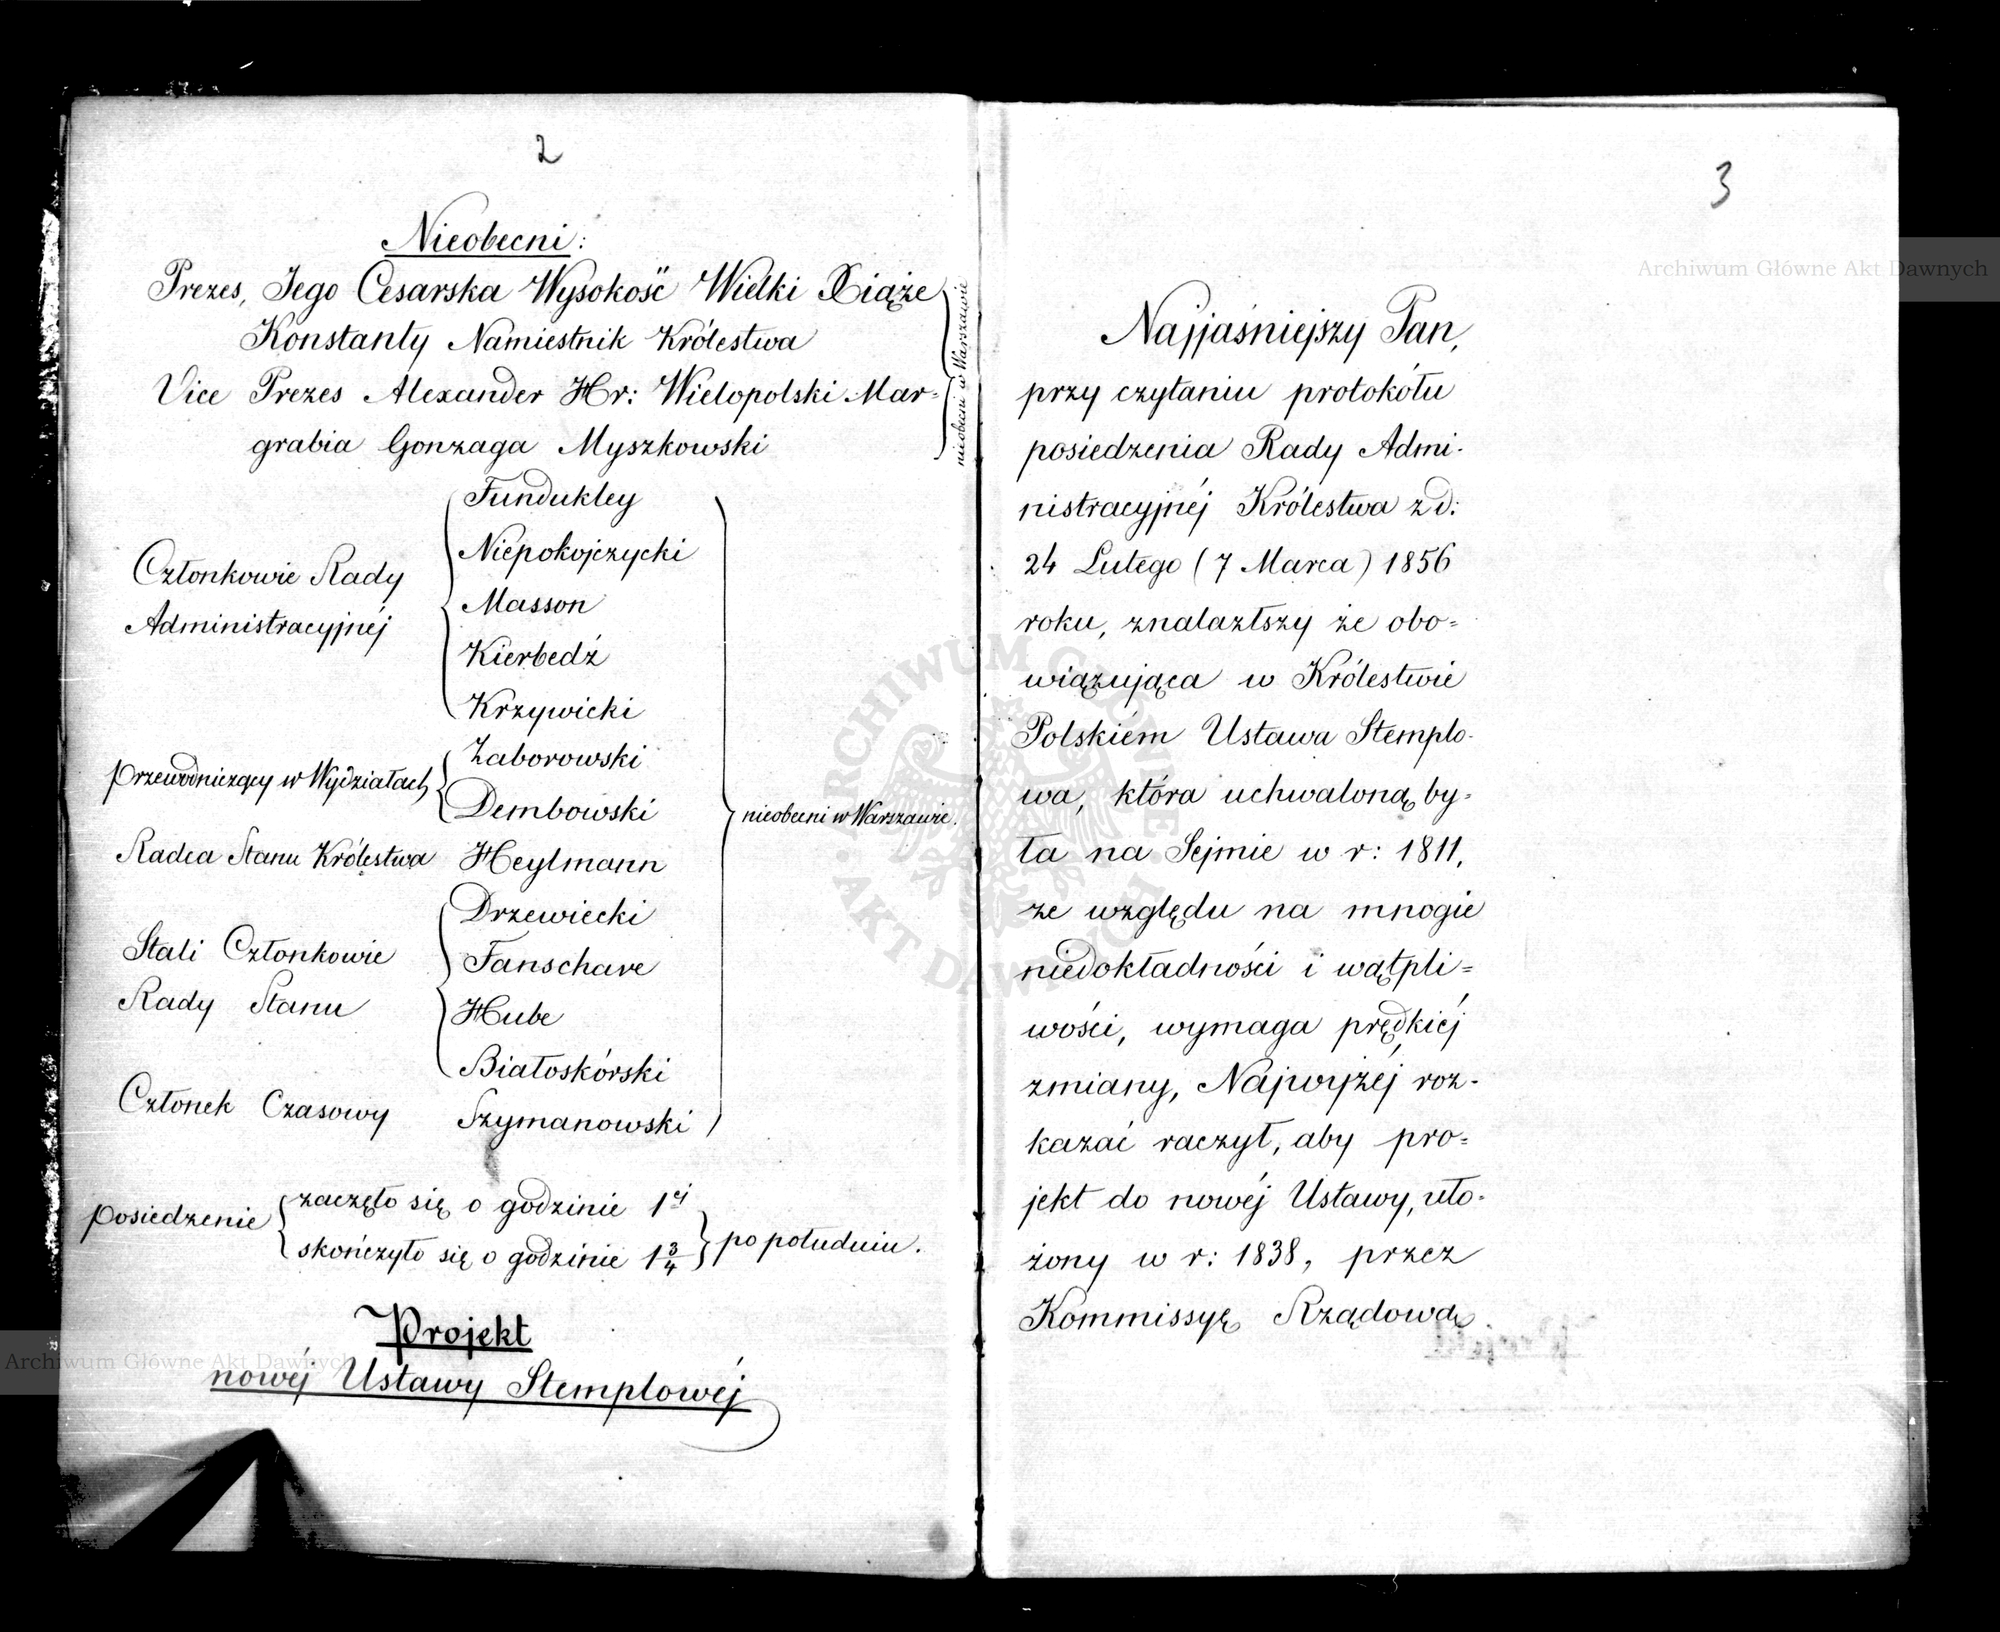 2
Nieobecni:
Prezes, Jego Cesarska Wysokość Wielki Xiąże
Konstanty Namiestnik Królestwa
Vice Prezes Alexander Hr: Wielopolski Mar=
grabia Gonzaga Myszkowski
nieobecni w Warszawie
Członkowie Rady
Administracyjnéj
Fundukley
Niepokojczycki
Masson
Kierbedź
Krzywicki
Przewodniczący w Wydziałach
Zaborowski
Dembowski
Radca Stanu Królestwa Heylmann
Stali Członkowie
Rady Stanu
Drzewiecki
Fanschave
Hube
Białoskórski
Członek Czasowy Szymanowski
nieobecni w Warszawie.
Posiedzenie
zaczęło się o godzinie 1éj
skończyło się o godzinie 1 3/4
po południu.
Projekt
nowéj Ustawy Stemplowéj
3
Najjaśniejszy Pan,
przy czytaniu protokółu
posiedzenia Rady Admi-
nistracyjnéj Królestwa z d:
24 Lutego (7 Marca) 1856
roku, znalazłszy że obo=
wiązująca w Królestwie
Polskiém Ustawa Stemplo-
wa, która uchwaloną by=
ła na Sejmie w r: 1811,
ze względu na mnogie
niedokładności i wątpli=
wości, wymaga prędkiéj
zmiany, Najwyżéj roz-
kazać raczył, aby pro=
jekt do nowéj Ustawy, uło-
żony w r: 1838, przez
Kommissyę Rządową
Archiwum Główne Akt Dawnych
Archiwum Główne Akt Dawnych
ARCHIWUM GŁÓWNE
AKT DAWNYCH